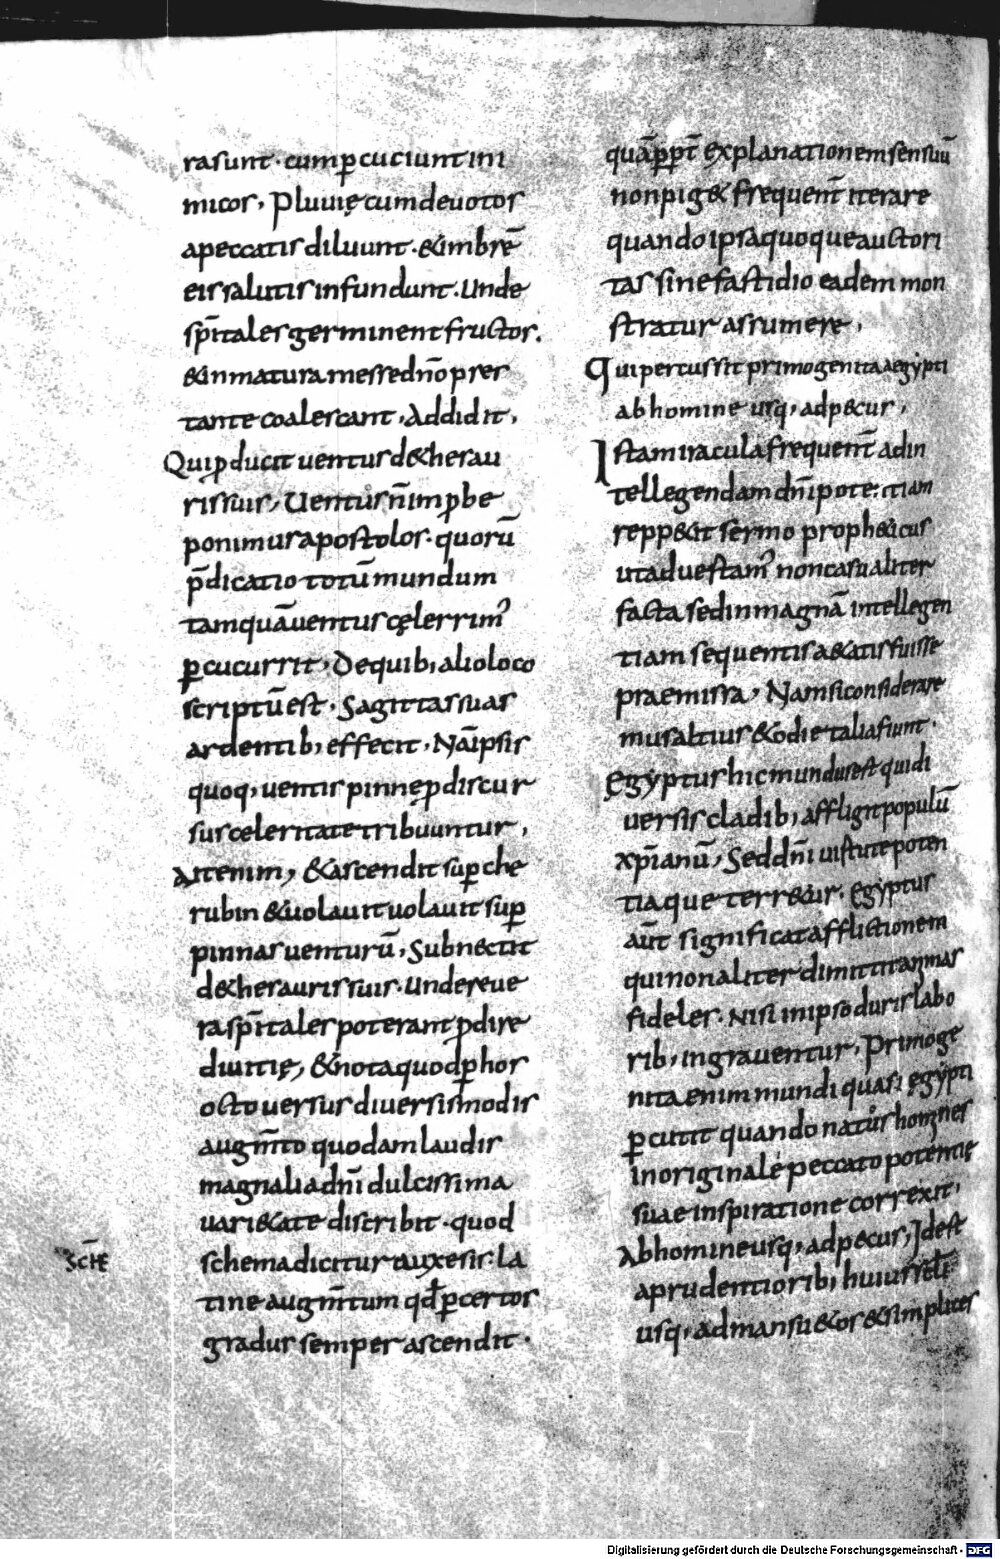 rasunt · cum ꝑcuciunt ini
micos, Pluuię cum deuotos
a peccatis diluunt · & imbrē
eis salutis infundunt. Unde
spītales germinent fructos.
& in matura messe dn̄o pres
tante coalescant, Addidit,
Qui ꝓducit uentus de thesau
ris suis, Uentus n̄ im ꝓbe
ponimus apostolos · quorū
p̄dicatio totū mundum
tamquā uentus cęlerrim᾽
ꝑcucurrit, De quib; alio loco
scriptū est, Sagittas suas
ardentib; effecit, Nā ipsis
quoq; uentis pinnę ꝓ discur
sus celeritate tribuuntur,
Ait enim, & ascendit suꝑ che
rubin & uolauit uolauit suꝑ
pinnas uenturū, Subnectit
de thesauris suis · unde reue
ra spītales poterant ꝓdire
diuitię, & nota quod ꝑ hos
octo uersus diuersis modis
augm̄to quodam laudis
magnalia dn̄i dulcissima
uari&ate discribit · quod
SCHE
schema dicitur auxesis · la
tine augm̄tum qd̄ ꝑ certos
gradus semper ascendit ·
quā ꝓpt̄ explanationem sensuū
non pig& frequent̄ iterare
quando ipsa quoque auctori
tas sine fastidio eadem mon
stratur assumere,
Qui percussit primogenita aegẏpti
ab homine usq; ad pecus,
Ista miracula frequent̄ ad in
tellegendam dn̄i pote:tiam
repp&it sermo proph&icus
ut aduestam᾽ non casualiter
facta sed in magnā intellegen
tiam sequentis a&atis fuisse
praemissa, Nam si considerare
mus altius & odie talia fiunt ·
Ęgẏptus hic mundus est qui di
uersis cladib; affligit populū
xp̄ianū, Sed dn̄i uirtute poten
tiaque terr&ur · egẏptus
aūt significat afflictionem
qui non aliter dimittit animas
fideles · Nisi in ipso duris labo
rib; ingrauentur, Primoge
nita enim mundi quasi egẏpti
ꝑcutit quando natus homines
in originale peccato potentie
suae inspiratione correxit,
Ab homine usq; ad pecus, Id est
a prudentiorib; huius sc̄li
usq; ad mansu&os & simplices